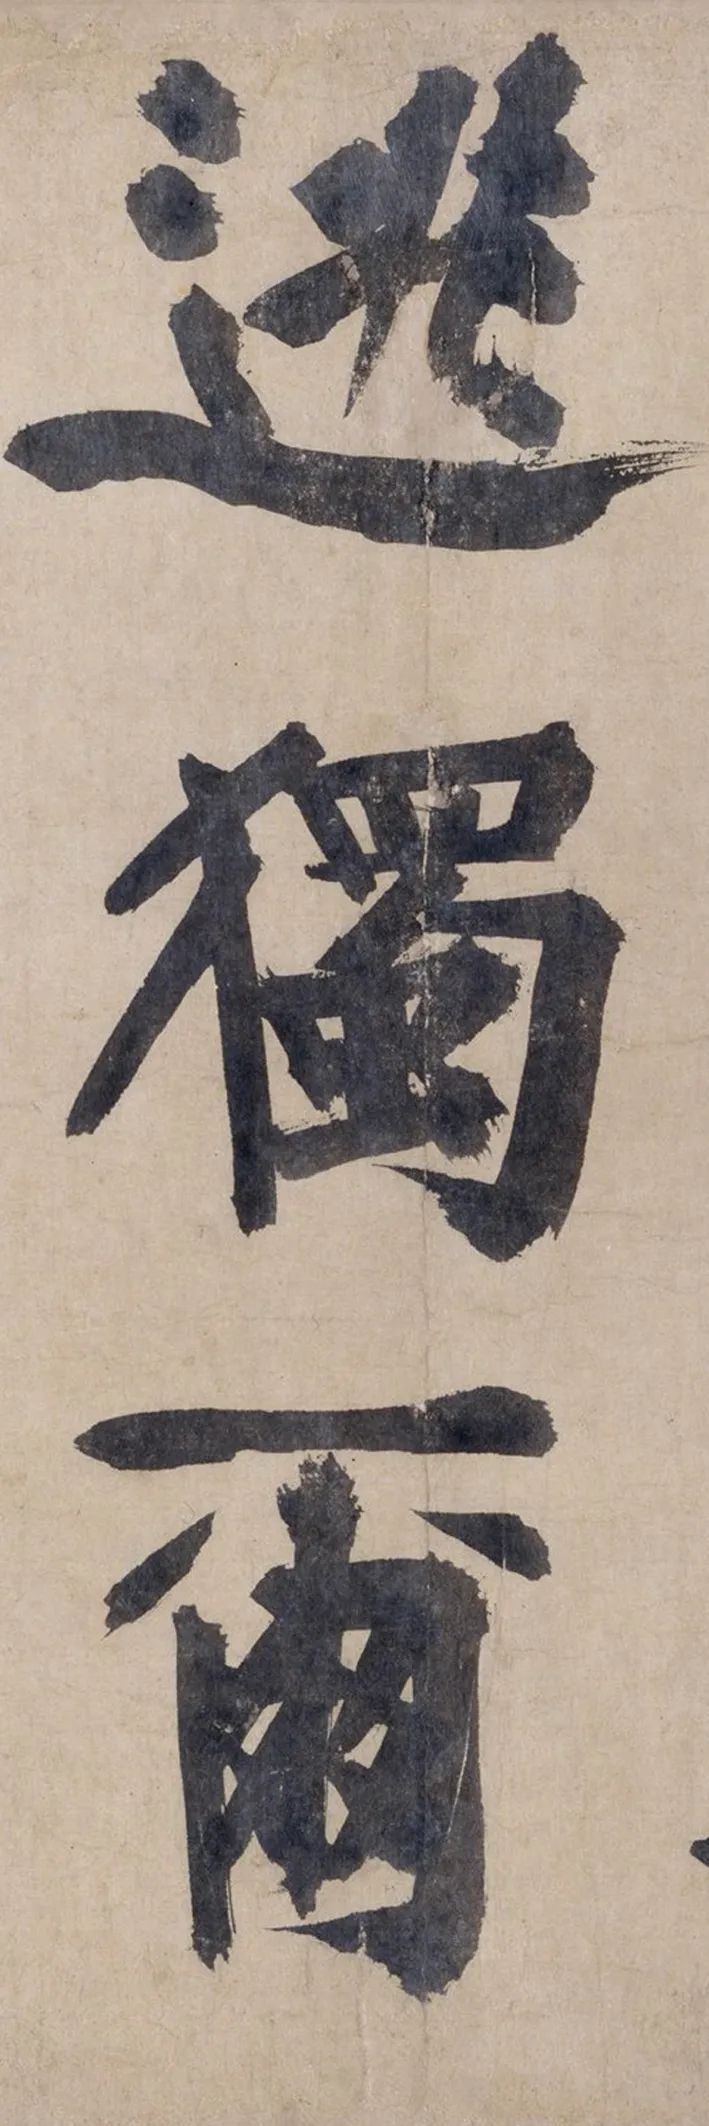 逃獨爾